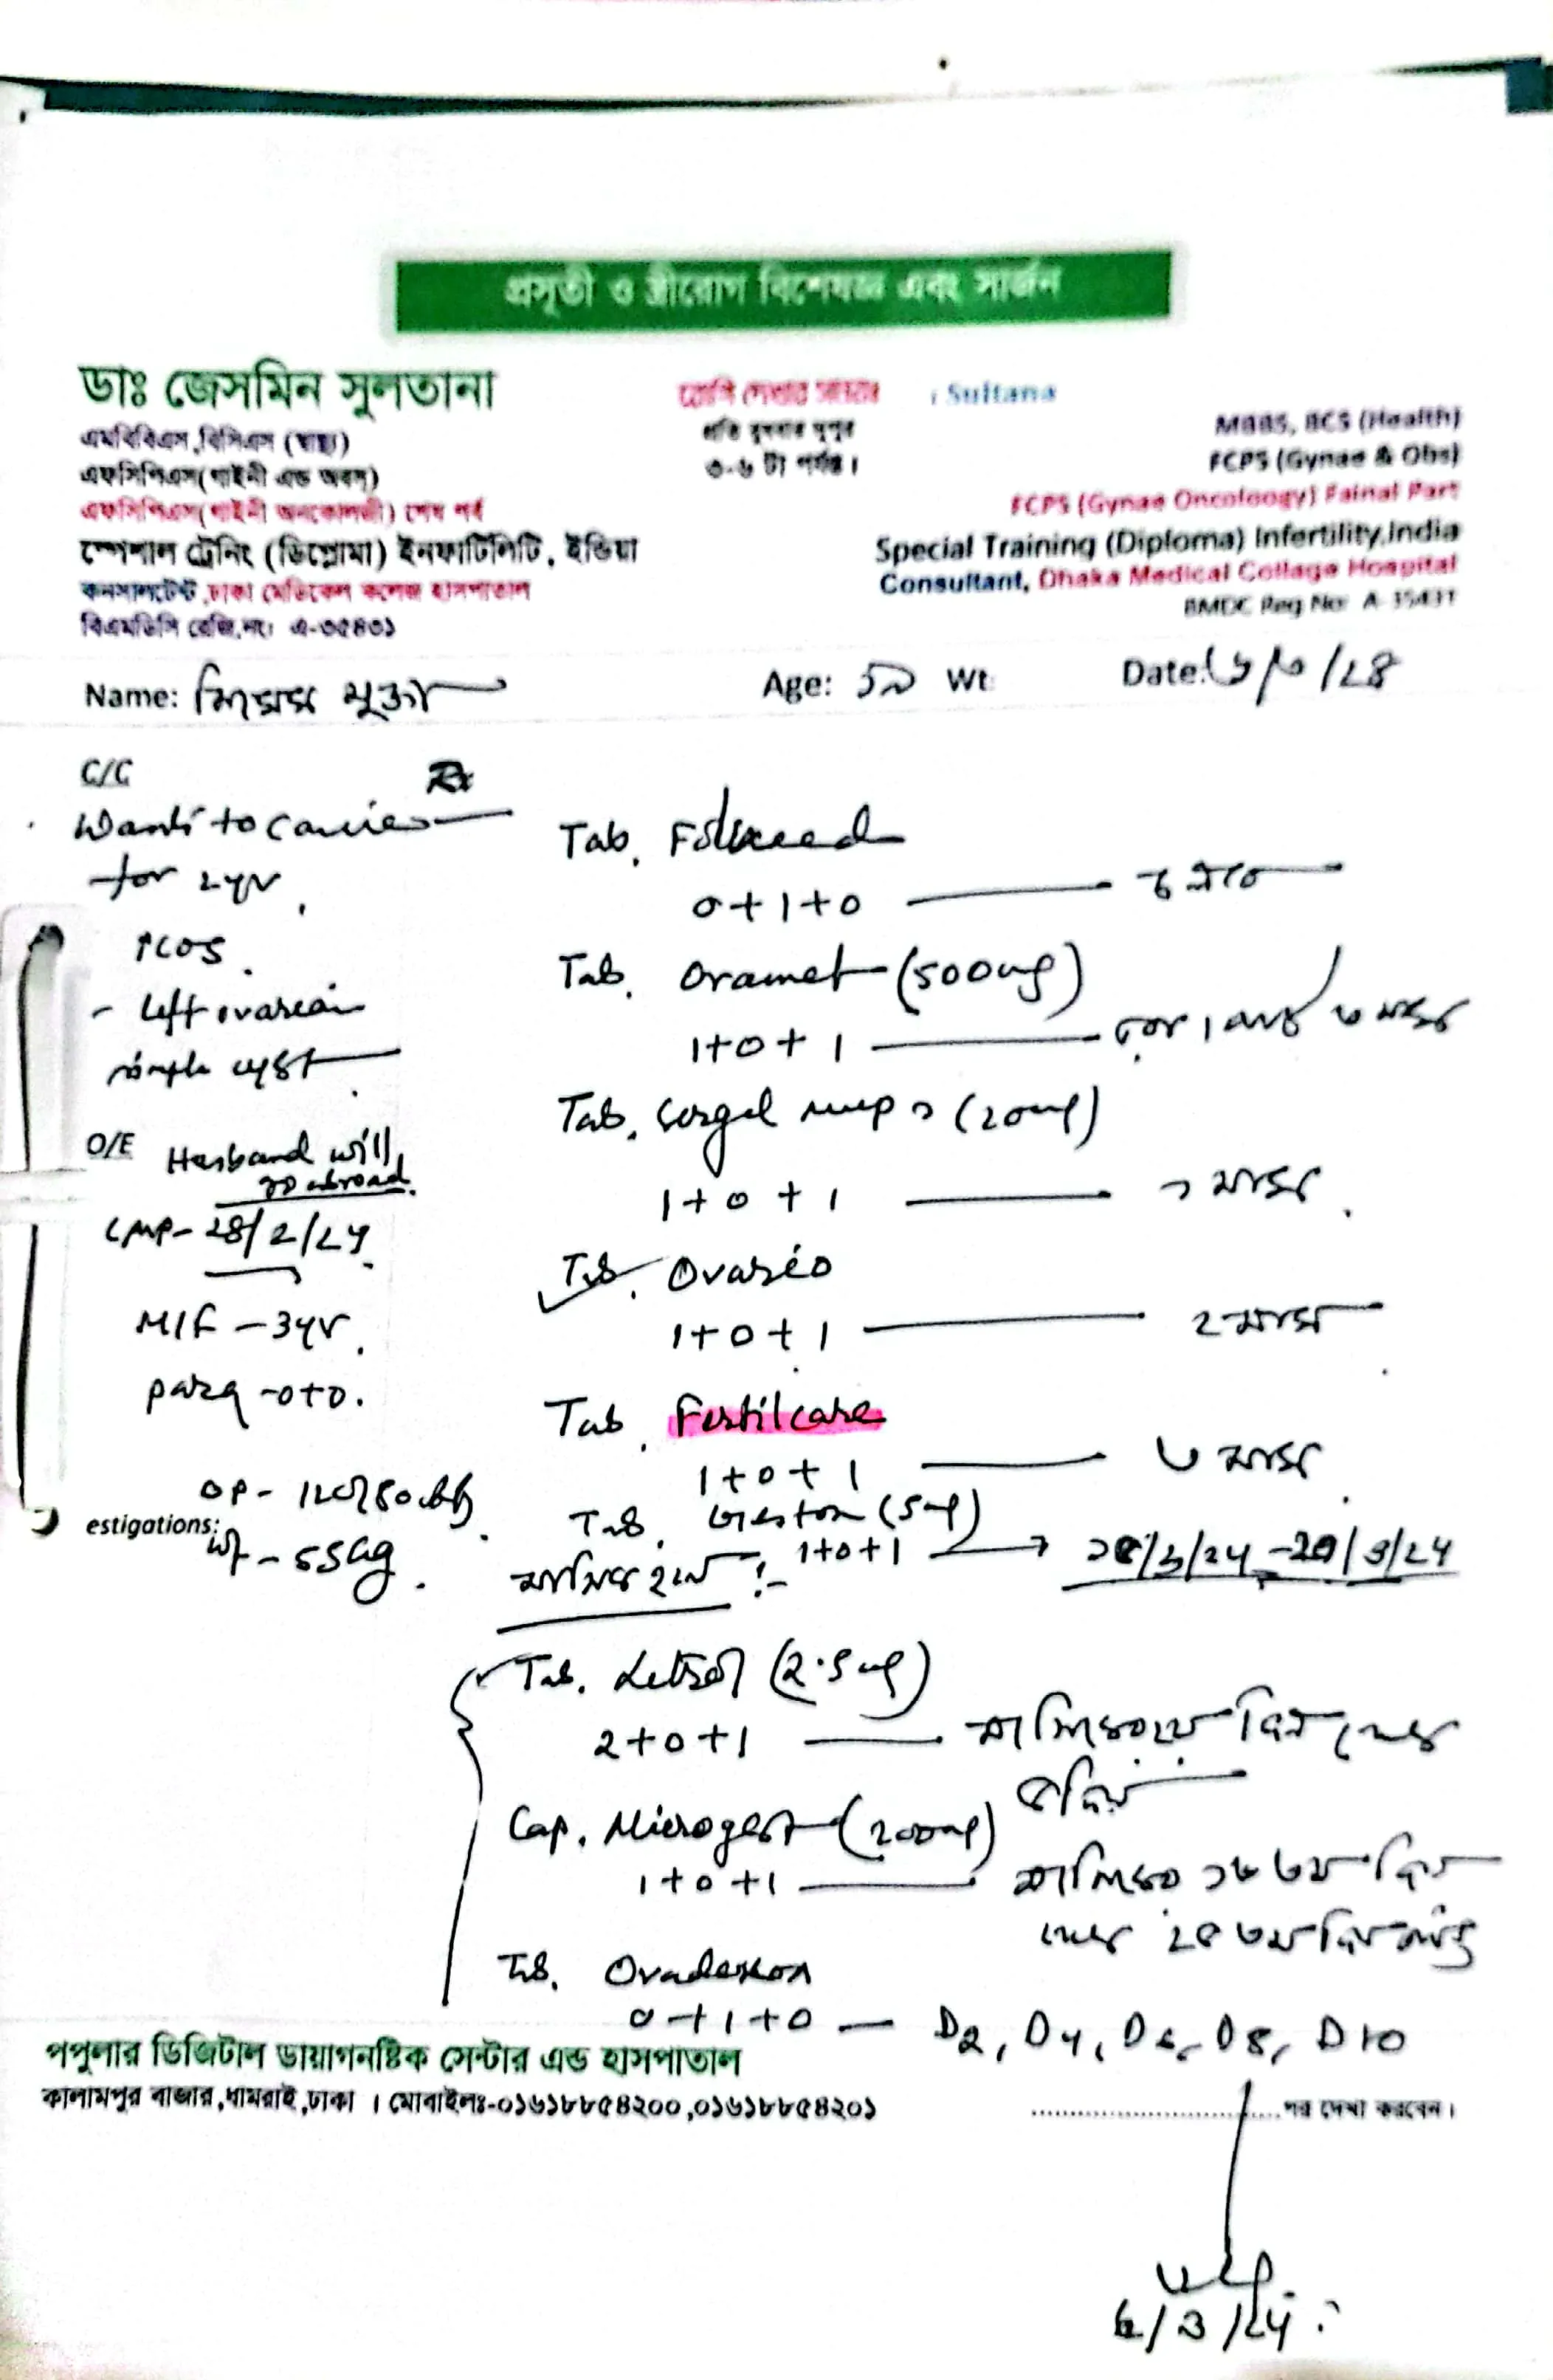 প্রসূতী ও স্ত্রীরোগ বিশেষজ্ঞ এবং সার্জন
ডাঃ জেসমিন সুলতানা
এমবিবিএস,বিসিএস (স্বাস্থ্য)
এফসিপিএস(গাইনী এন্ড অবস)
এফসিপিএস(গাইনী অনকোলজী) শেষ পর্ব
স্পেশাল ট্রেনিং (ডিপ্লোমা) ইনফার্টিলিটি, ইন্ডিয়া
কনসালটেন্ট,ঢাকা মেডিকেল কলেজ হাসপাতাল
বিএমডিসি রেজি,নং: এ-৩৫৪৩১
রোগি দেখার সময়ঃ
প্রতি বুধবার দুপুর
৩-৬ টা পর্যন্ত।
Sultana
MBBS, BCS (Health)
FCPS (Gynae & Obs)
FCPS (Gynae Oncoloogy) Fainal Part
Special Training (Diploma) Infertility,India
Consultant, Dhaka Medical Collage Hospital
BMDC Reg No: A-35431
Name: মিসেস মুক্তা
Age: ১৯ Wt
Date: /২৪
C/C
Rx
for 2yr.
PCOS.
- Left ovarian
simple cyst.
O/E Husband will
go abroad.
LMP- 28/2/24.
M/F - 3yr.
para -0+0.
BP- 120/80
estigations:
wt - 55kg.
Tab.
0+1+0
Tab. Oramet (500mg)
1+0+1
Tab. Sergel mups (20mg)
1+0+1 ১ মাস.
Tab. Ovario
1+0+1 ২ মাস
Tab. Fertilcare
1+0+1 ৩ মাস.
Tab. (5mg)
1+0+1
মাসিক হলে :-
Tab. Letrol (2.5mg)
2+0+1 মাসিকের ২য় দিন থেকে
৫ দিন
Cap. Microgest (200mg)
1+0+1 মাসিকের ১৬ তম দিন
থেকে ২৫ তম দিন পর্যন্ত
Tab.
0+1+0 — D2, D4, D6, D8, D10
পপুলার ডিজিটাল ডায়াগনষ্টিক সেন্টার এন্ড হাসপাতাল
কালামপুর বাজার,ধামরাই,ঢাকা । মোবাইলঃ-০১৬১৮৮৫৪২০০,০১৬১৮৮৫৪২০১
..............................পর দেখা করবেন।
6/3/24.